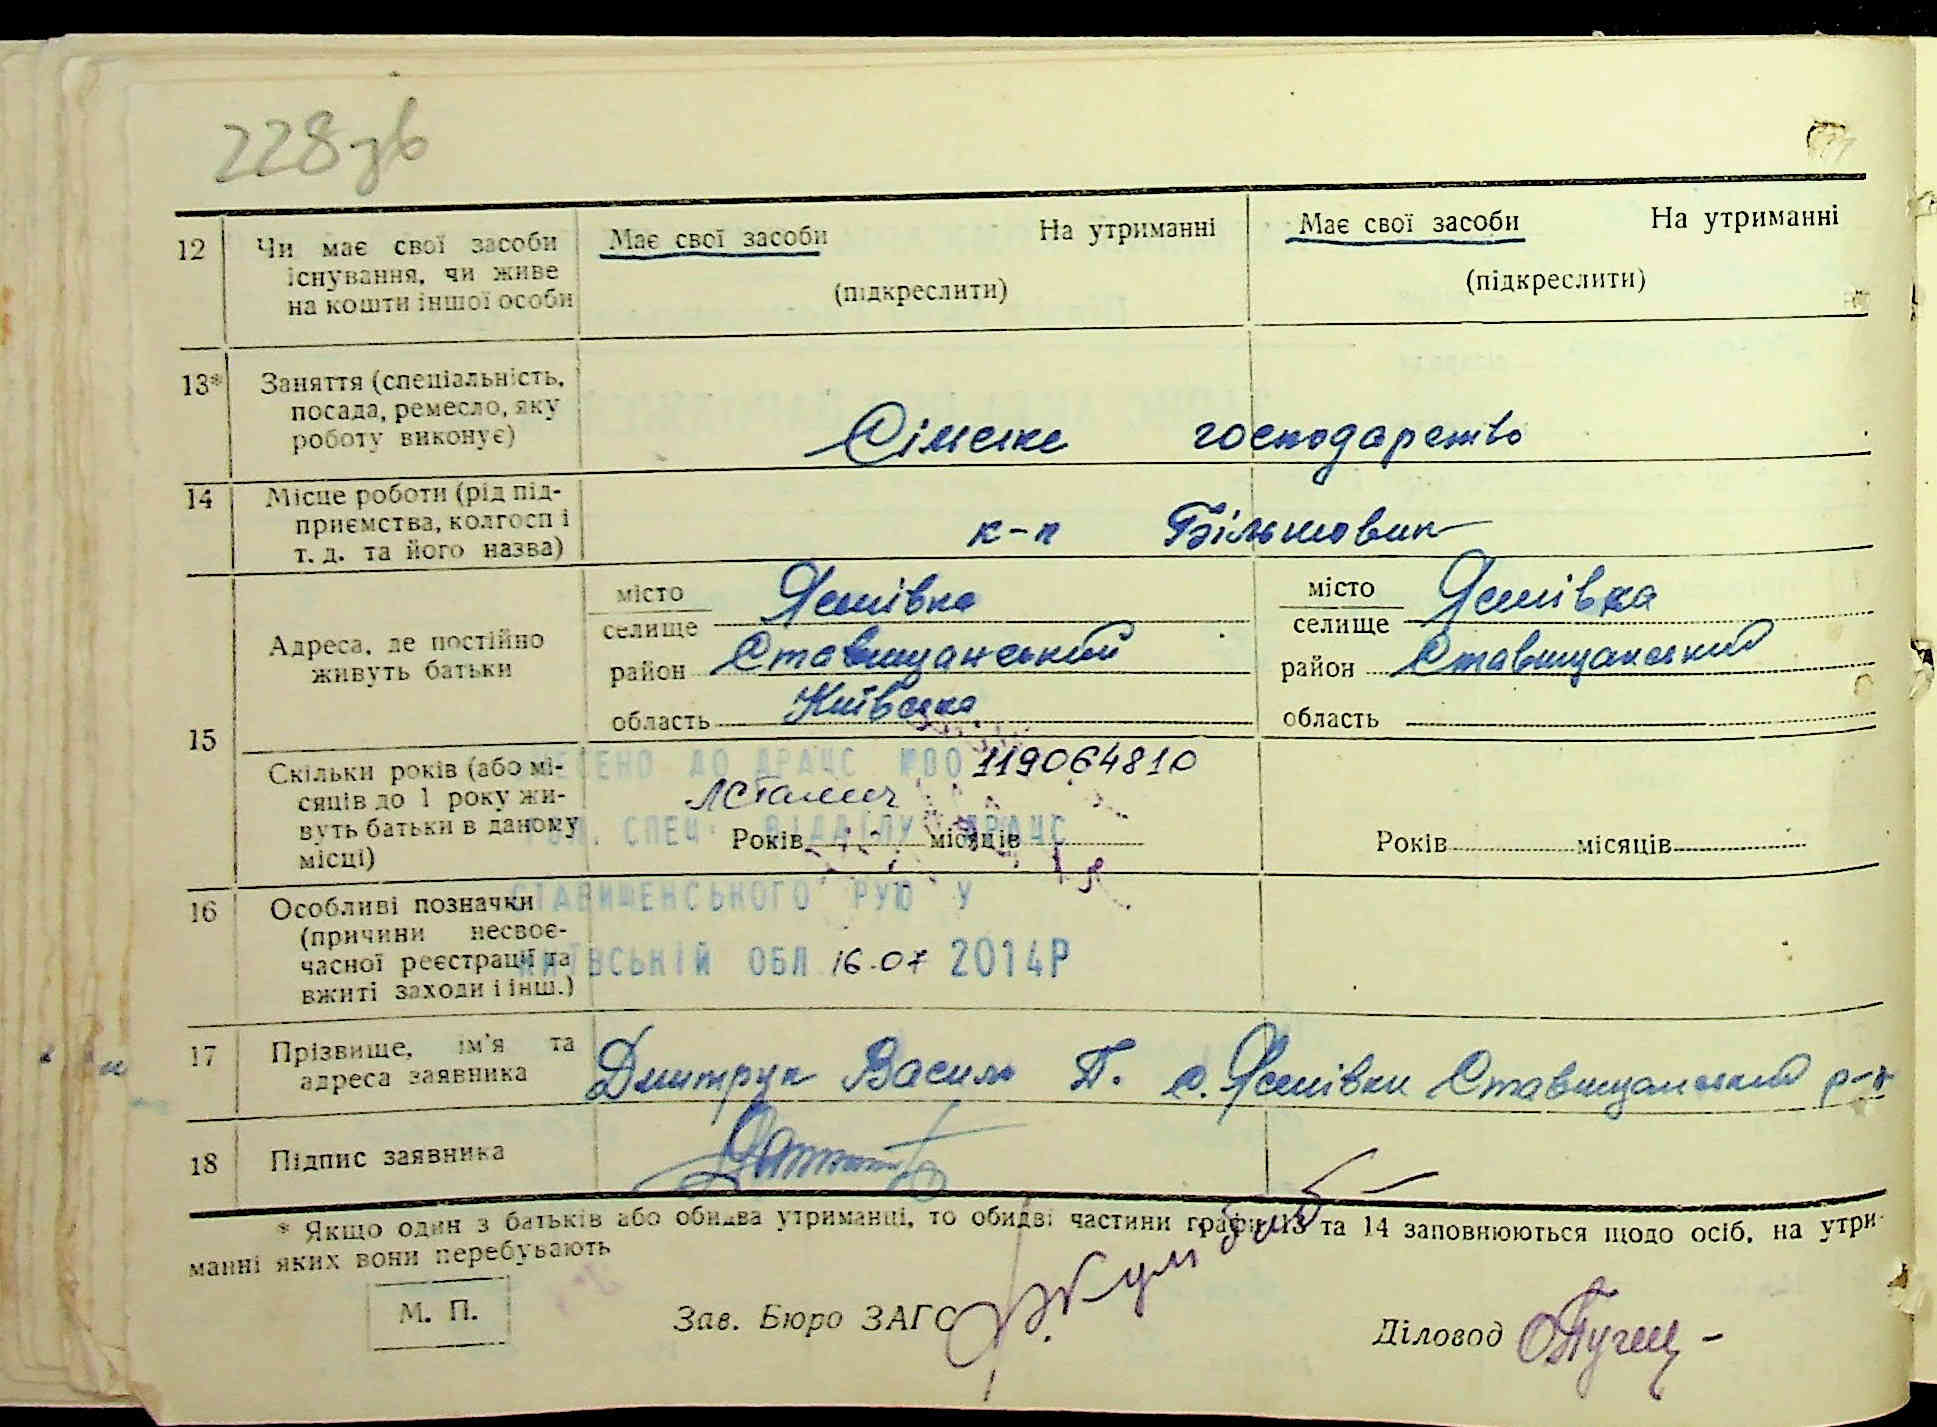 228зв
12 Чи має свої засоби існування, чи живе на кошти іншої особи
Має свої засоби На утриманні
(підкреслити)
Має свої засоби На утриманні
(підкреслити)
13* Заняття (спеціальність,
посада, ремесло, яку
роботу виконує)
Сільське господарство
14 Місце роботи (рід під-
приємства, колгосп і
т. д. та його назва)
к-п Більшовик
15 Адреса, де постійно
живуть батьки
місто
селище Яснівка
район Ставищанський
область Київська
місто
селище Яснівка
район Ставищанський
область
Скільки років (або мі-
сяців до 1 року жи-
вуть батьки в даному
місці)
ЕНО ДО ДРАЦС №00119064810
СПЕЦ. ВІДДІЛУ ДРАЦС
Років місяців
Років місяців
СТАВИЩЕНСЬКОГО РУЮ У
КИЇВСЬКІЙ ОБЛ 16.07 2014Р
16 Особливі позначки
(причини несвоє-
часної реєстрації та
вжиті заходи і інш.)
17 Прізвище, ім'я та
адреса заявника
Дмитрук Василь П. с. Яснівки Ставищанський р-н
18 Підпис заявника
* Якщо один з батьків або обидва утриманці, то обидві частини графи 13 та 14 заповнюються щодо осіб, на утри-
манні яких вони перебувають
М. П.
Зав. Бюро ЗАГС
Діловод